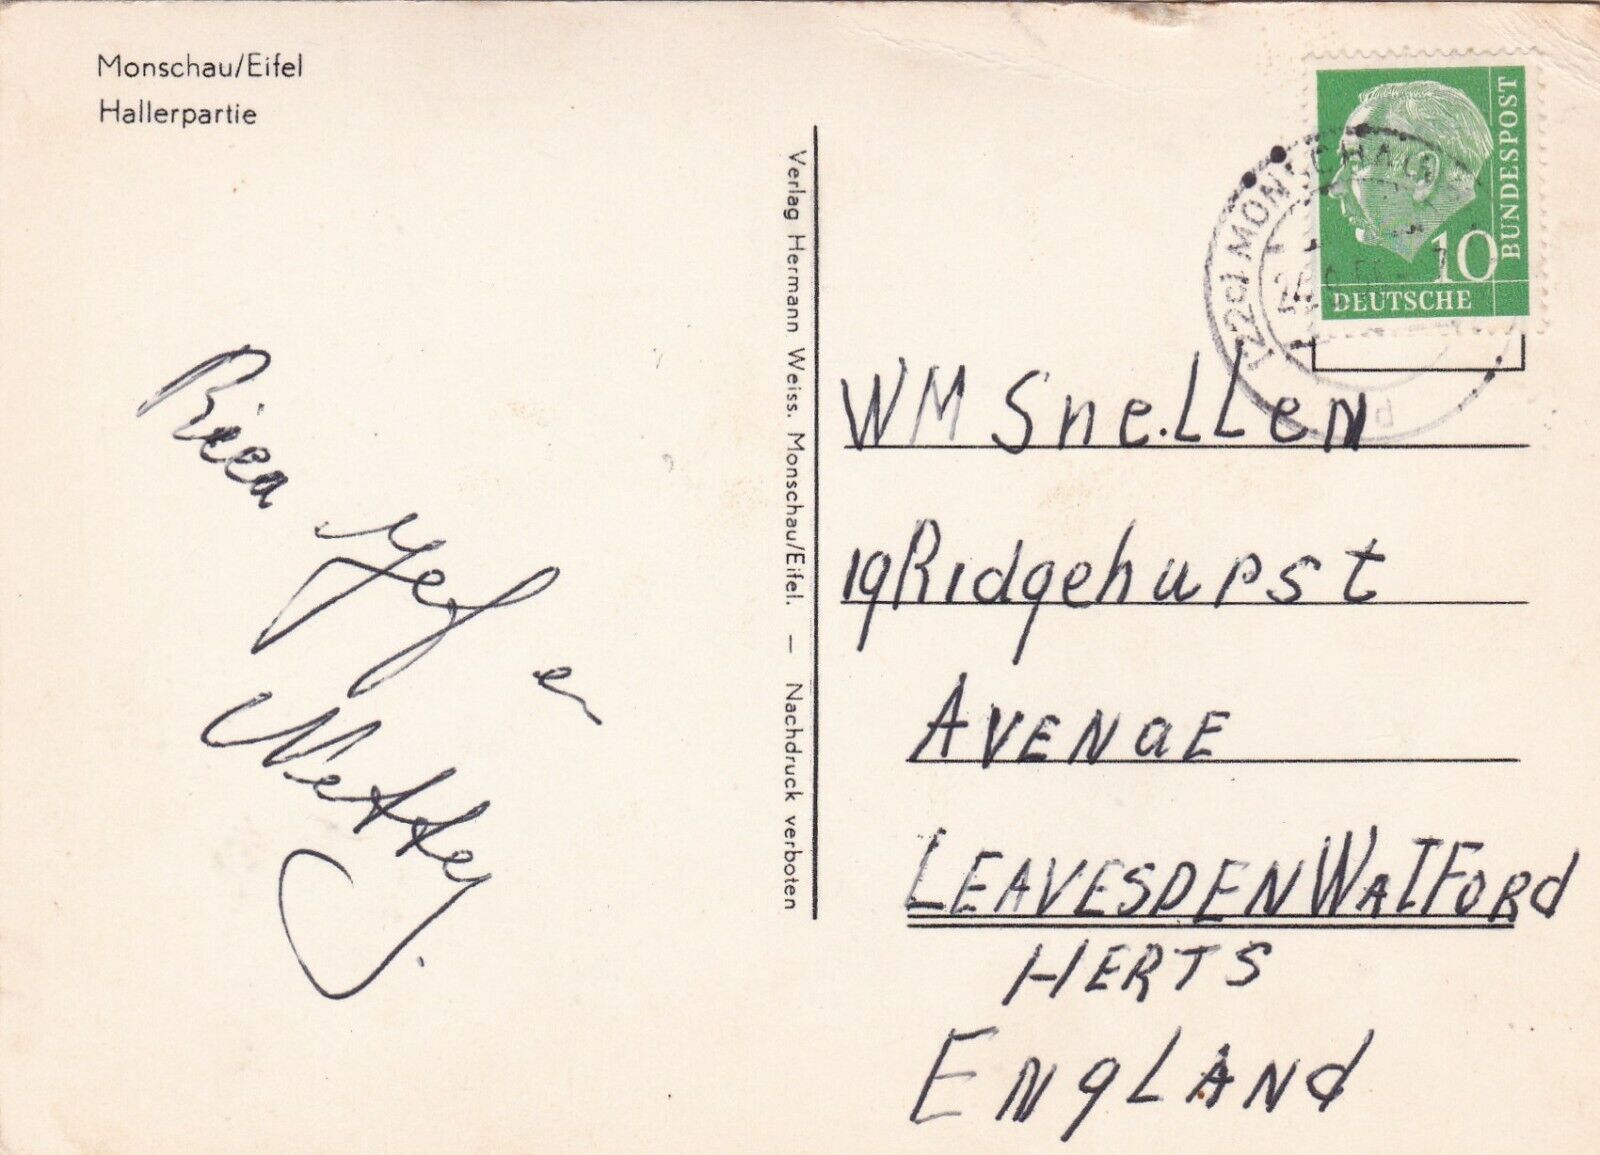 Monschau/Eifel
Hallerpartie
Verlag Hermann Weiss. Monschau/Eifel. — Nachdruck verboten
BUNDESPOST
10
DEUTSCHE
(22c) MONSCHAU
Jef en
Netty.
WM SneLLEN
19 Ridgehurst
AVENaE
LEAVESDEN WATFORd
HERTS
ENgLANd